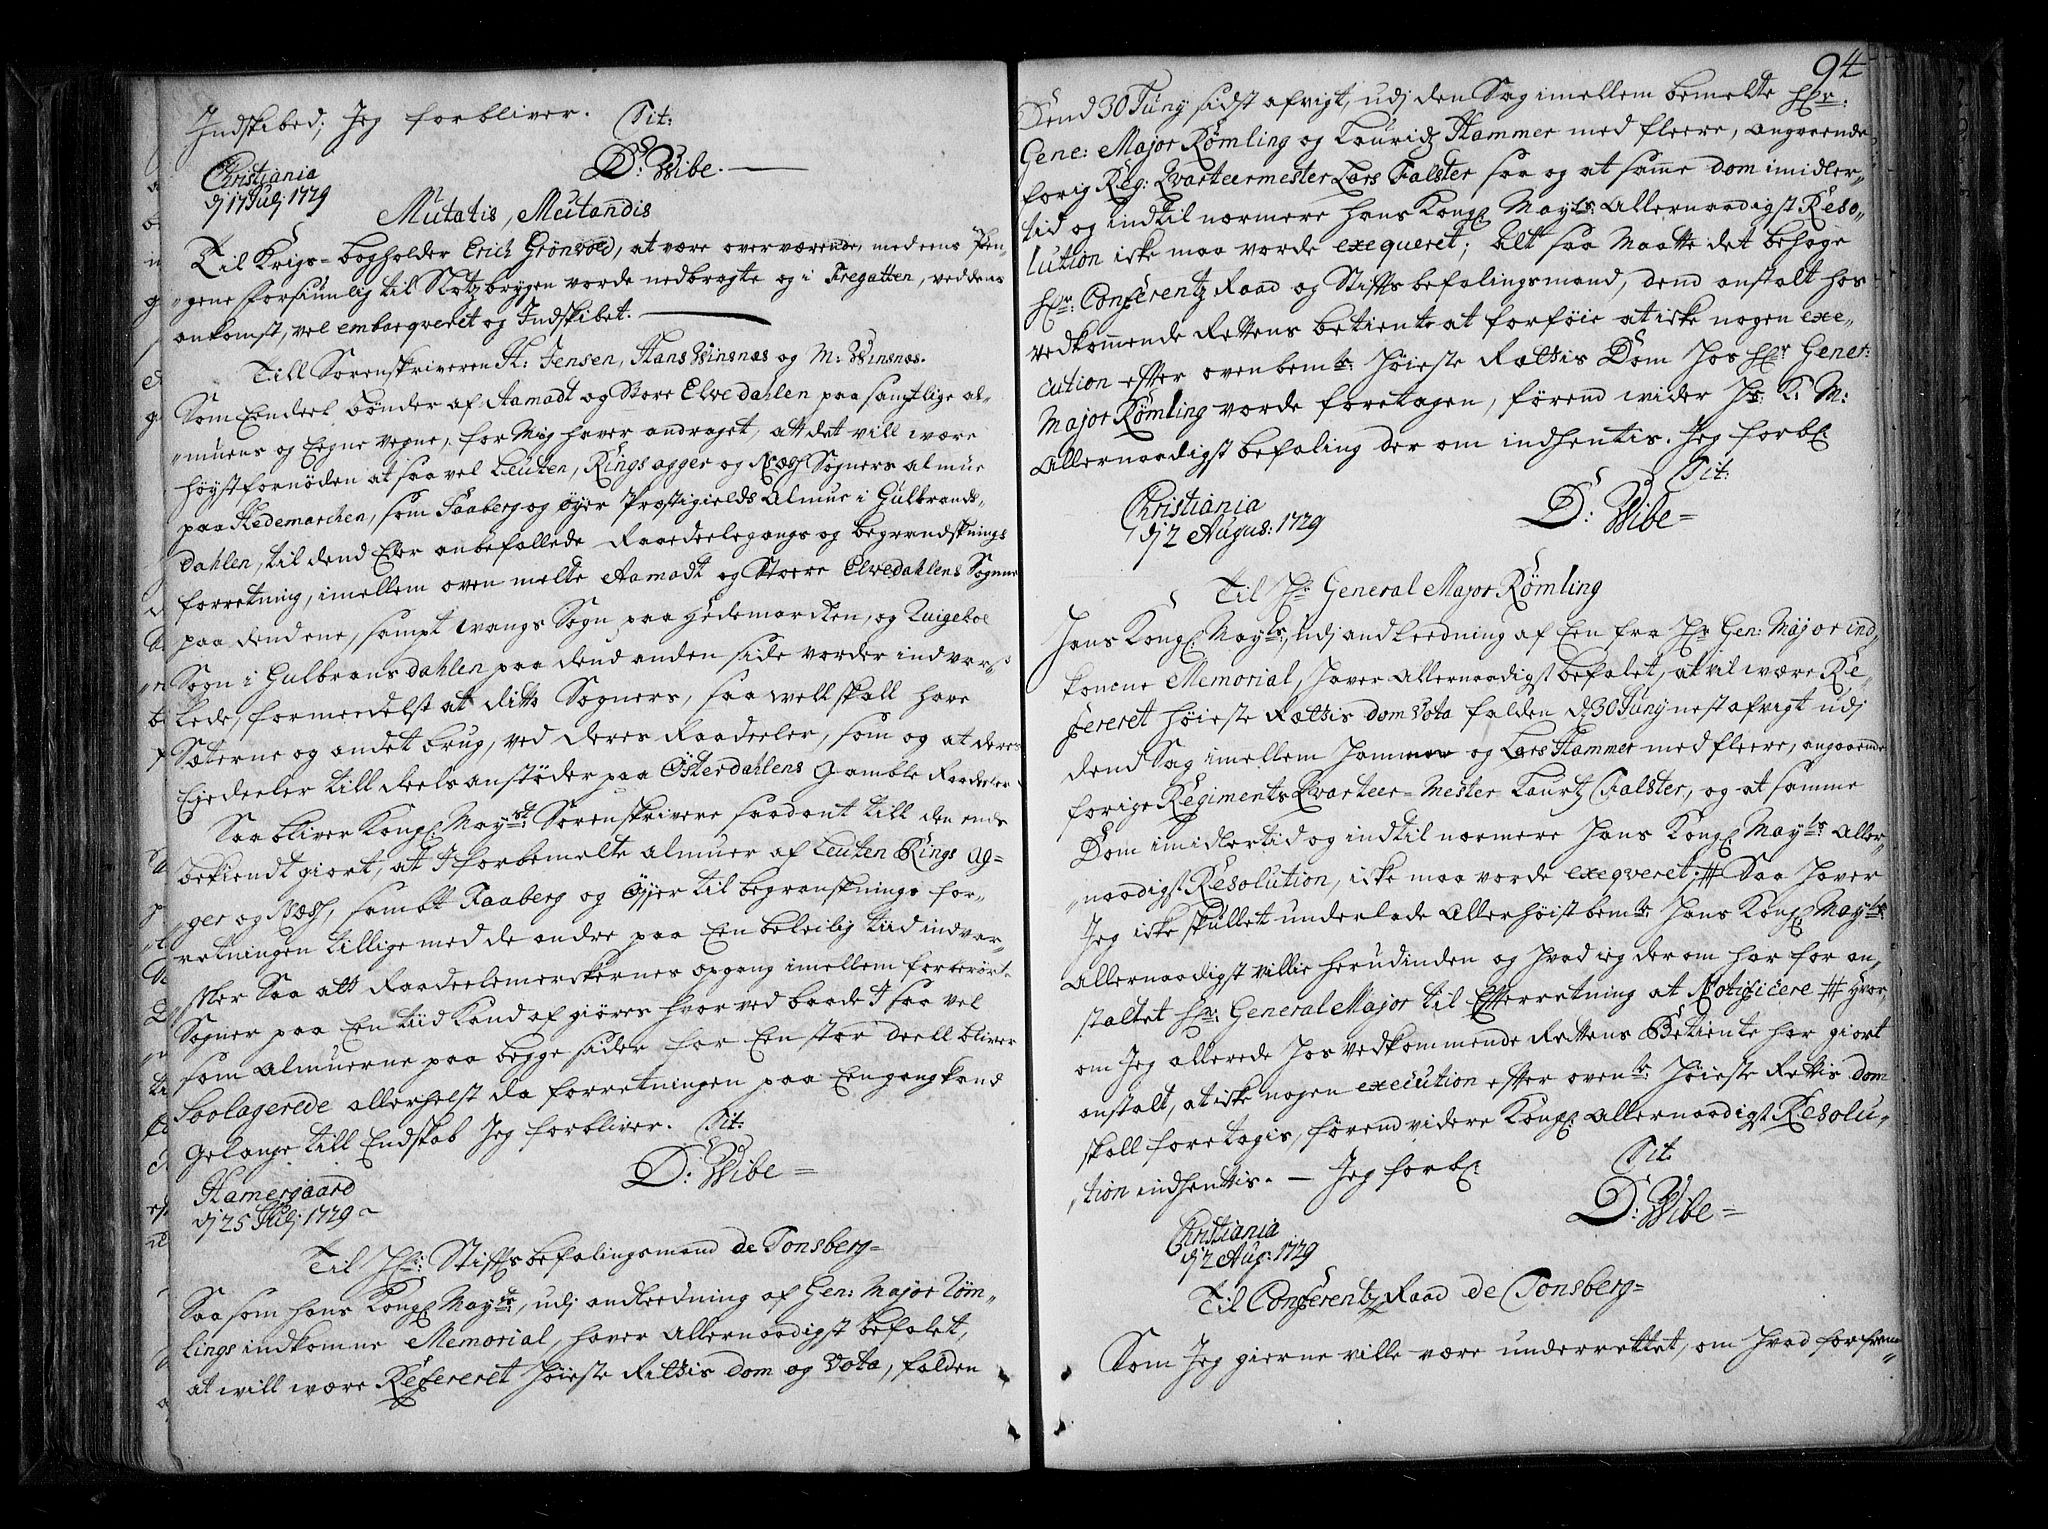 Indskibed; Jeg forbliver. Tit:
D: Wibe.
Christiania
dj 17 Julj 1729
Mutatis, Mutandis
Til Krigs=bogholder Erich Grönvold, at være overværende, med eens Pen¬
gene forsiunlig til Slotzbrygen vorde nedbragte og i Fregatten, ved dens
ankomst, vel embarqveret og Indskibet.
Till Sorenskriveren H: Jensen, Hans Winsnæs og M: Winsnæs.
Som Eendeel bönder af Aamadt og Store Elvedahlen paa samtlige al¬
muens og Eegne vegne, for Mig haver andraget, at det vill være
höystfornöden at saavel Leuten, Ringsagger og Næss Sogners almue
paa Hedemarchen, som Faaberg og öyer Præstigields Almue i Gulbrands¬
Dahlen, til dend Eder anbefallede Raaedeelegangs og begrændsknings
forretning, imellem ovenmelte Aamadt og Stoere Elvedahlens Sogner
paa dend ene, sampt Wangs Sogn paa Hedemarcken, og Ringeboe
Sogn i Gulbransdahlen paa dend anden side vorder indvar¬
slede, formedelst at ditto Sogners, saa well skall have
Sæterne og andet brug, ved deres Raadeeler, som og at deres
Eyedeeler till deels anstöder paa Österdahlens gamble Raadeeler
Saa bliver Kongl May.ts Sorenskrivere saadant till den ende
bekiendtgiort, at I forbemelte almuer af Leuten Rings ag=
ger og Næss, sambt Faaberg og Öyer til begranskninge for¬
retningen tillige med de andre paa Een beleilig tiid indvar¬
sler Saa att Raadeelemerskernes opgang imellem forberört.
Sogner paa Een tiid kand afgiöres hvorved baade I saa vel
som Almuerne paa begge sider for Een stor deell bliver
Soolagerede allerhelst da forretningen paa Eengang kand
gelange till Endskab Jeg forbliver. Tit:
D: Wibe=
Hamergaard
dj 25 Julj 1729
Til Hr: Stiftsbefalingsmand de Tonsberg=
Saasom hans Kongl May.ts, udj anleedning af Gen: Major Röm¬
lings indkomne Memorial, haver Allernaadigst befalet,
at will være Refereret höieste Rettis dom og Vota, falden
94
Dend 30 Juny sidst afvigt, udj den Sag imellem bemelte Hr:
Gene: Major Römling og Lauridz Hammer med fleere, angaaende
forig Reg: Qvarteermester Lars Falster saa og at same dom imidler¬
tid og indtil nærmere hans Kongl May.ts Allernaadigst Reso¬
lution icke maa vorde exequeret; Alt saa Maatte det behage
Hr: Conferentz Raad og Stiftsbefalingsmand, dend anstalt hos
vedkommende Rettens betiente at forföie at icke nogen exe¬
cution efter ovenbem.te höieste Rættis Dom hos Hr Gener:
Major Römling vorde foretagen, förend wider H: K: M:
Allernaadigst befaling der om indhentis. Jeg forbl:
Tit:
D: Wibe=
Christiania
dj 2 Augus: 1729
Til H: General Major Römling
Hans Kongl May.ts, udj andleedning af Een fra Hr Gen: Major ind¬
komne Memorial, haver Allernaadigst befalet, at vil være Re¬
fereret höieste Rættis dom Vota falden d 30 Juny nest afvigt udj
dend Sag imellem hammer og Lars Hammer med fleere, angaaende
forige Regiments Qvarteer=Mester Lauritz Falster, og at samme
Dom imidlertid og indtil nærmere Hans Kongl May.ts Aller¬
naadigst Resolution, icke maa vorde exeqveret; # Saa haver
Jeg icke skullet underlade Allerhöistbem.te Hans Kongl May.ts
Allernaadigst villie herudinden og hvad ieg derom har for an¬
staltet Hr: General Major til Efterretning at Notificere # hvor¬
om Jeg allerede hos vedkommende Rettens Betiente har giort
anstalt, at icke nogen execution efter oven.te höieste Rettis dom
skall foretagis, förend videre Kongl: Allernaadigst Resolu¬
tion indhentis. — Jeg forbl:
Tit
D: Wibe=
Christiania
dj 2 Aug: 1729
Til Conferentz Raad de Tonsberg=
Som Jeg gierne ville være underrettet, om hvad